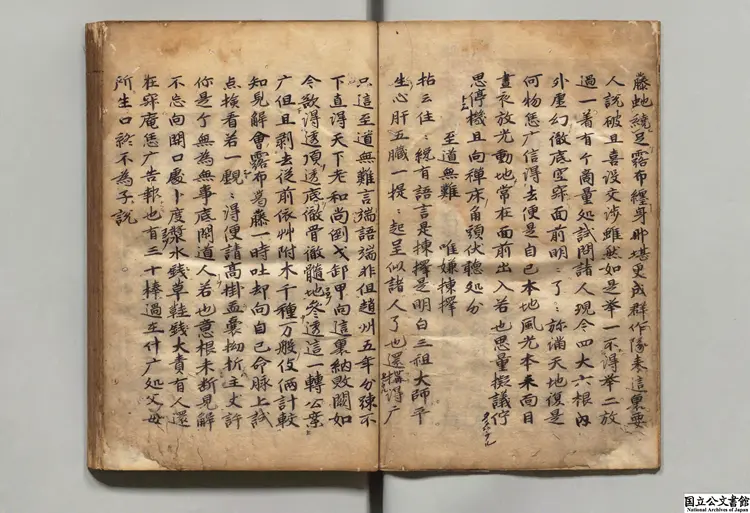 藤虵繞足露布纏身那堪更成群作隊来這裏要
人說破且喜沒交涉雖然如是举一不得举二放
過一着有个商量処試問諸人現今四大六根内
外虚幻徹底空寂面前明〻了〻弥满天地復是
何物恁广信得去便是自己本地風光本来面目
晝夜放光動地常在面前出入若也思量擬議佇
思停機且向禅床角頭伏聴処分
至道無難 唯嫌揀擇
拈云住〻纔有語言是揀擇是明白三祖大師平
生心肝五臓一提〻起呈似諸人了也還搆得广
只這至道無難言端語端非但趙州五年分疎不
下直得天下老和尚倒戈卸甲向這裏納敗闕如
今欲得透頂透底徹骨徹髓地参透這一轉公案
广但且剥去従前依艸附木千種万般伎倆計較
知見解會露布葛藤一時吐却向自己命脉上試
点挨看若一覷〻得便請高掛盂囊拗折主丈許
你是个無為無事底閑道人若也意根未断見解
不忘向開口處卜度漿水銭草鞋銭大責有人還
在寂庵恁广告報也有三十棒過在什广処父母
所生口終不為子說
国立公文書館
National Archives of Japan